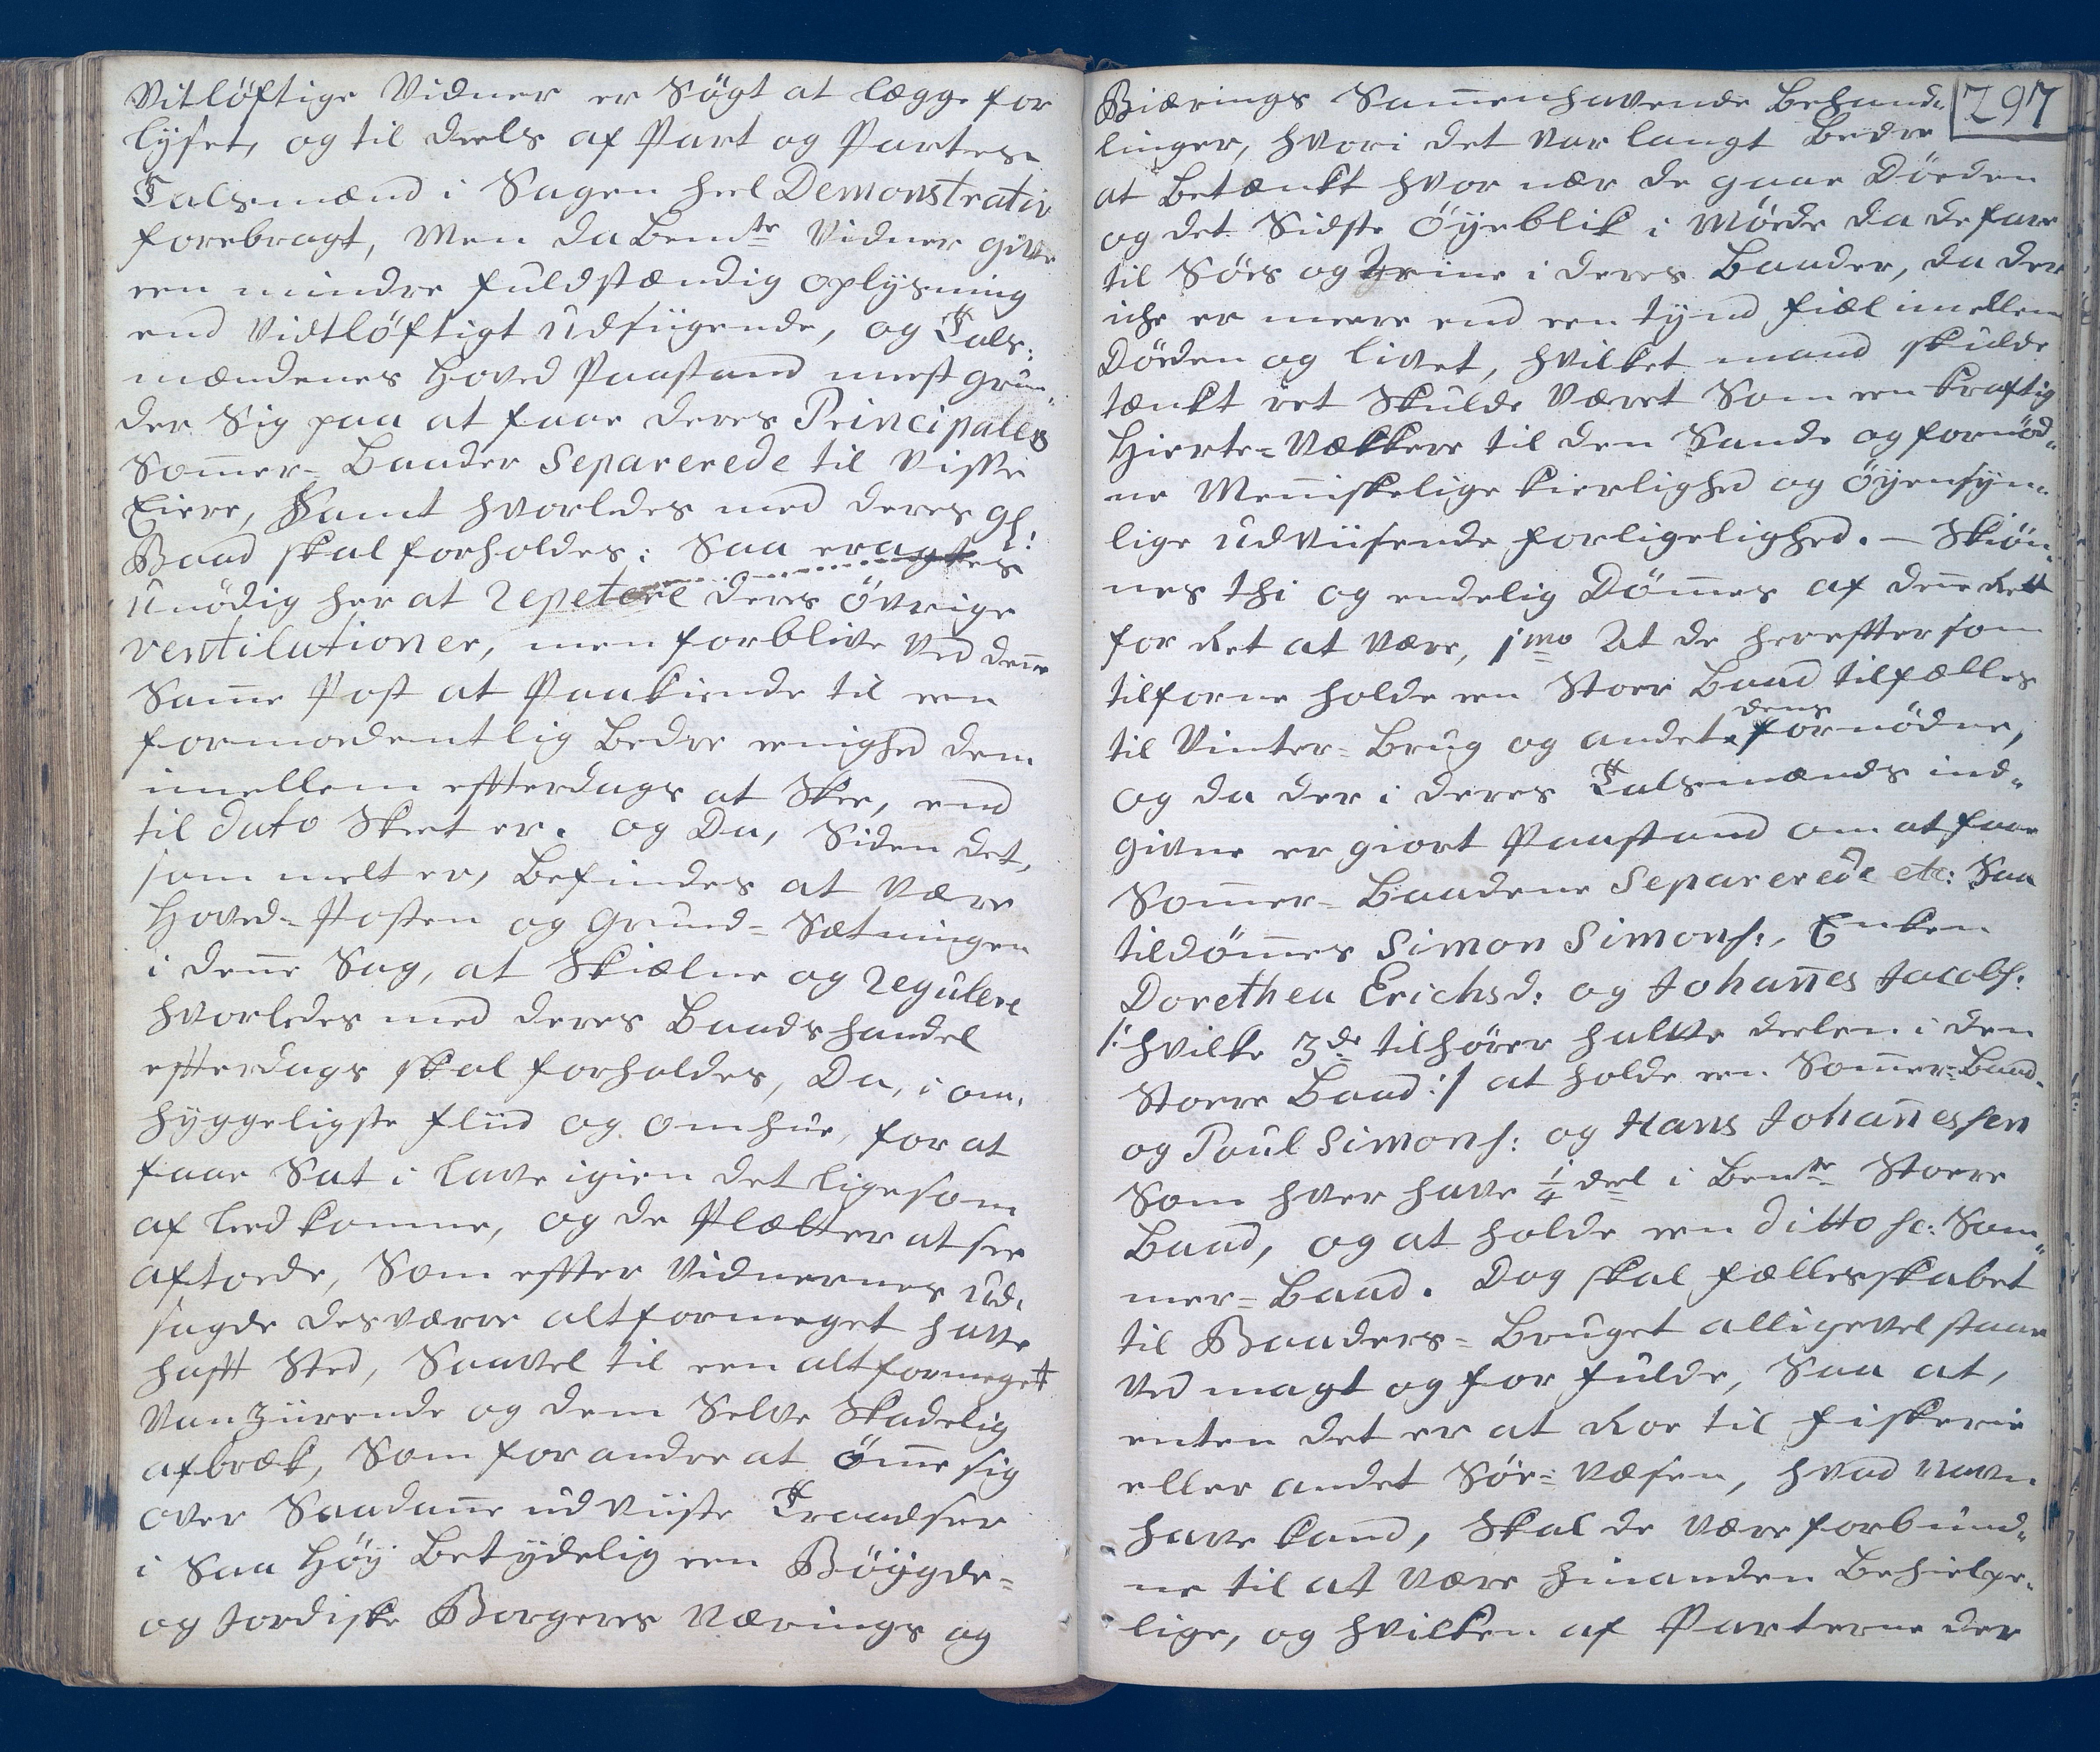 Vitløftige Vidner er Søgt at lægge for
lyset, og til deels af Part og Partes
Talsmænd i Sagen heel Demonstrativ
forebragt, Men da Bemte Vidner give
een mindre fuldstændig oplysning
end Vidtløftigt udsiigende, og Tals:
mændenes Hoved Paastand meest grun„
der Sig paa at faae deres Principales
Som̄er-Baader Separerede til Visse
Eiere, Samt hvorledes med deres gl:
Baad skal forholdes: Saa eragtes
unødig her at repetere deres øvrige
ventilationer, men forblive ved den̄e
Sam̄e Post at Paakiende til een
formodentlig Bedre eenighed dem
imellem effterdags at Skee, end
til dato Skeet er. og Da, Siden det,
som melt er, Befindes at være
Hoved-Posten og Grund-Sætningen
i den̄e Sag, at Skiælne og regulere
hvorledes med deres Baads handel
effterdags skal forholdes, Da, i om„
hyggeligste fliid og omhue, for at
faae Sat i lave igien det ligesom
af Leed komne, og de Pletter at see
aftoede, Som effter Vidnernes ud„
sagde desværre altformeget have
hafft Sted, Saavel til een altformeget
Vanziirende og dem Selve Skadelig
afbræk, Som for andre at øm̄e sig
over Saadan̄e udviiste Traadser
i Saa Høy Betydelig een Bøygde-
og Jordiske Borgeres Nærings og
Biærings Sam̄enhavende Behand„
297
linger, hvori det var langt Bedre
at Betænkt hvor nær de gaae Døden
og det Sidste Øyeblik i Møde da de fare
til Søes og i deres Baader, da der
iche er meere end een tynd fiæl imellem
Døden og livet, hvilket mand skulde
tænkt ret Skulde været Som een kraftig
Hierte-Vækkere til den Sande og fornød„
ne Men̄iskelige kierlighed og øyensyn„
lige udviisende forligelighed. — Skiøn„
nes thi og endelig Døm̄es af den̄e Rett
for Ret at være, 1mo At de hereffter som
tilforne holde een Stoer Baad tilfælles
til Vinter-Brug og andet dens fornødne,
og da der i deres Talsmænds ind„
givne er giort Paastand om at faae
Som̄er-Baadene Separerede etc: Saa
tildøm̄es Simon Simons:, Enken
Dorethea Erichsd: og Johan̄es Jacobs:
/: hvilke 3de tilhører halve deelen i den
Stoere Baad :/ at holde een Som̄er-Baad.
og Poul Simons: og Hans Johan̄essen
Som hver have ¼ deel i Bemte Stoere
Baad, og at holde een ditto sc: Som„
mer-Baad. Dog skal fællesskabet
til Baaders-Bruget alligevel staae
ved magt og for fulde, Saa at,
enten det er at Roe til fiskerie
eller andet Søe-væsen, hvad navn
have kand, Skal de være forbund„
ne til at være hinanden Behielpe„
lige, og hvilken af Parterne der